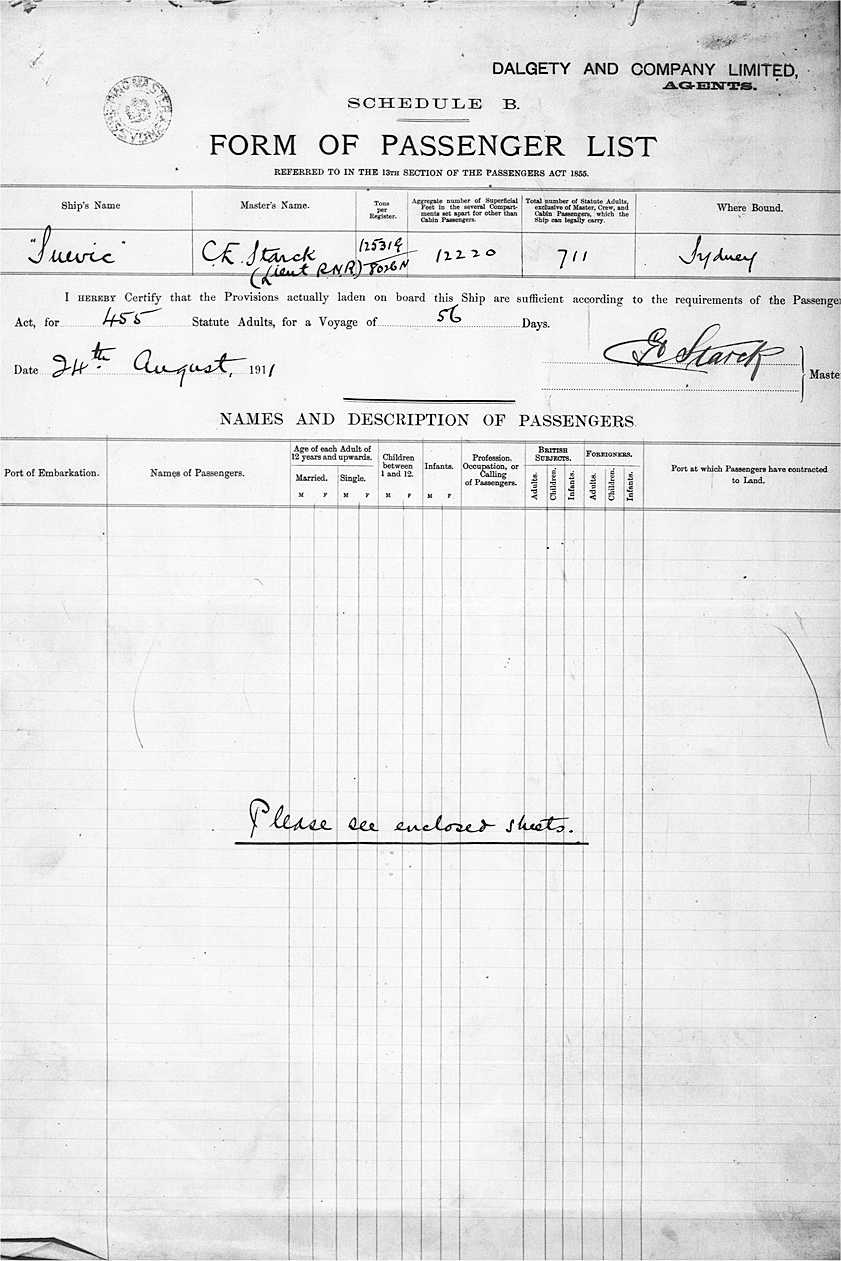 DALGETY AND COMPANY LIMITED,
AGENTS.
SCHEDULE B.
FORM OF PASSENGER LIST
REFERRED TO IN THE 13TH SECTION OF THE PASSENGERS ACT 1855.
Ship's Name
Master's Name.
Tons
per
Register.
Aggregate number of Superficial
Feet in the several Compart-
ments set apart for other than
Cabin Passengers.
Total number of Statute Adults,
exclusive of Master, Crew, and
Cabin Passengers, which the
Ship can legally carry.
Where Bound.
"Suevic"
C.E. Starck
(Lieut RNR)
12531 G
8026 N
12220
711
Sydney
I HEREBY Certify that the Provisions actually laden on board this Ship are sufficient according to the requirements of the Passenger
Act, for 455 Statute Adults, for a Voyage of 56 Days.
Date 24th August, 1911
Starck
Maste
NAMES AND DESCRIPTION OF PASSENGERS
Port of Embarkation.
Names of Passengers.
Age of each Adult of
12 years and upwards.
Married.
Single.
M F M F
Children
between
1 and 12.
M F
Infants.
M F
Profession.
Occupation, or
Calling
of Passengers.
BRITISH
SUBJECTS.
Adults.
Children.
Infants.
FOREIGNERS.
Adults.
Children.
Infants.
Port at which Passengers have contracted
to Land.
Please see enclosed sheets.